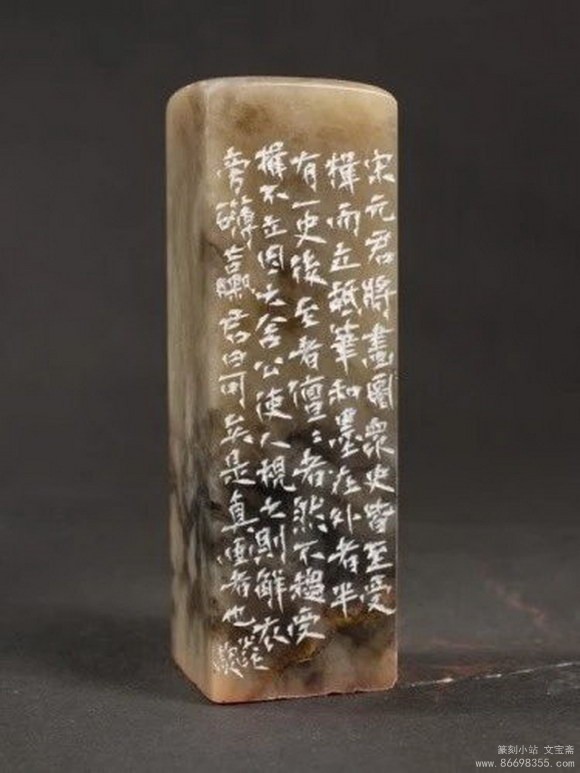 宋元君將畫圖衆史皆至受
揖而立舐筆和墨在外者半
有一史後至者儃〻者然不趨受
揖不立因之舍公使人視之則解衣
旁礴臝君曰可矣是真畫者也
篆刻小站 文宝斋
www.86698355.com